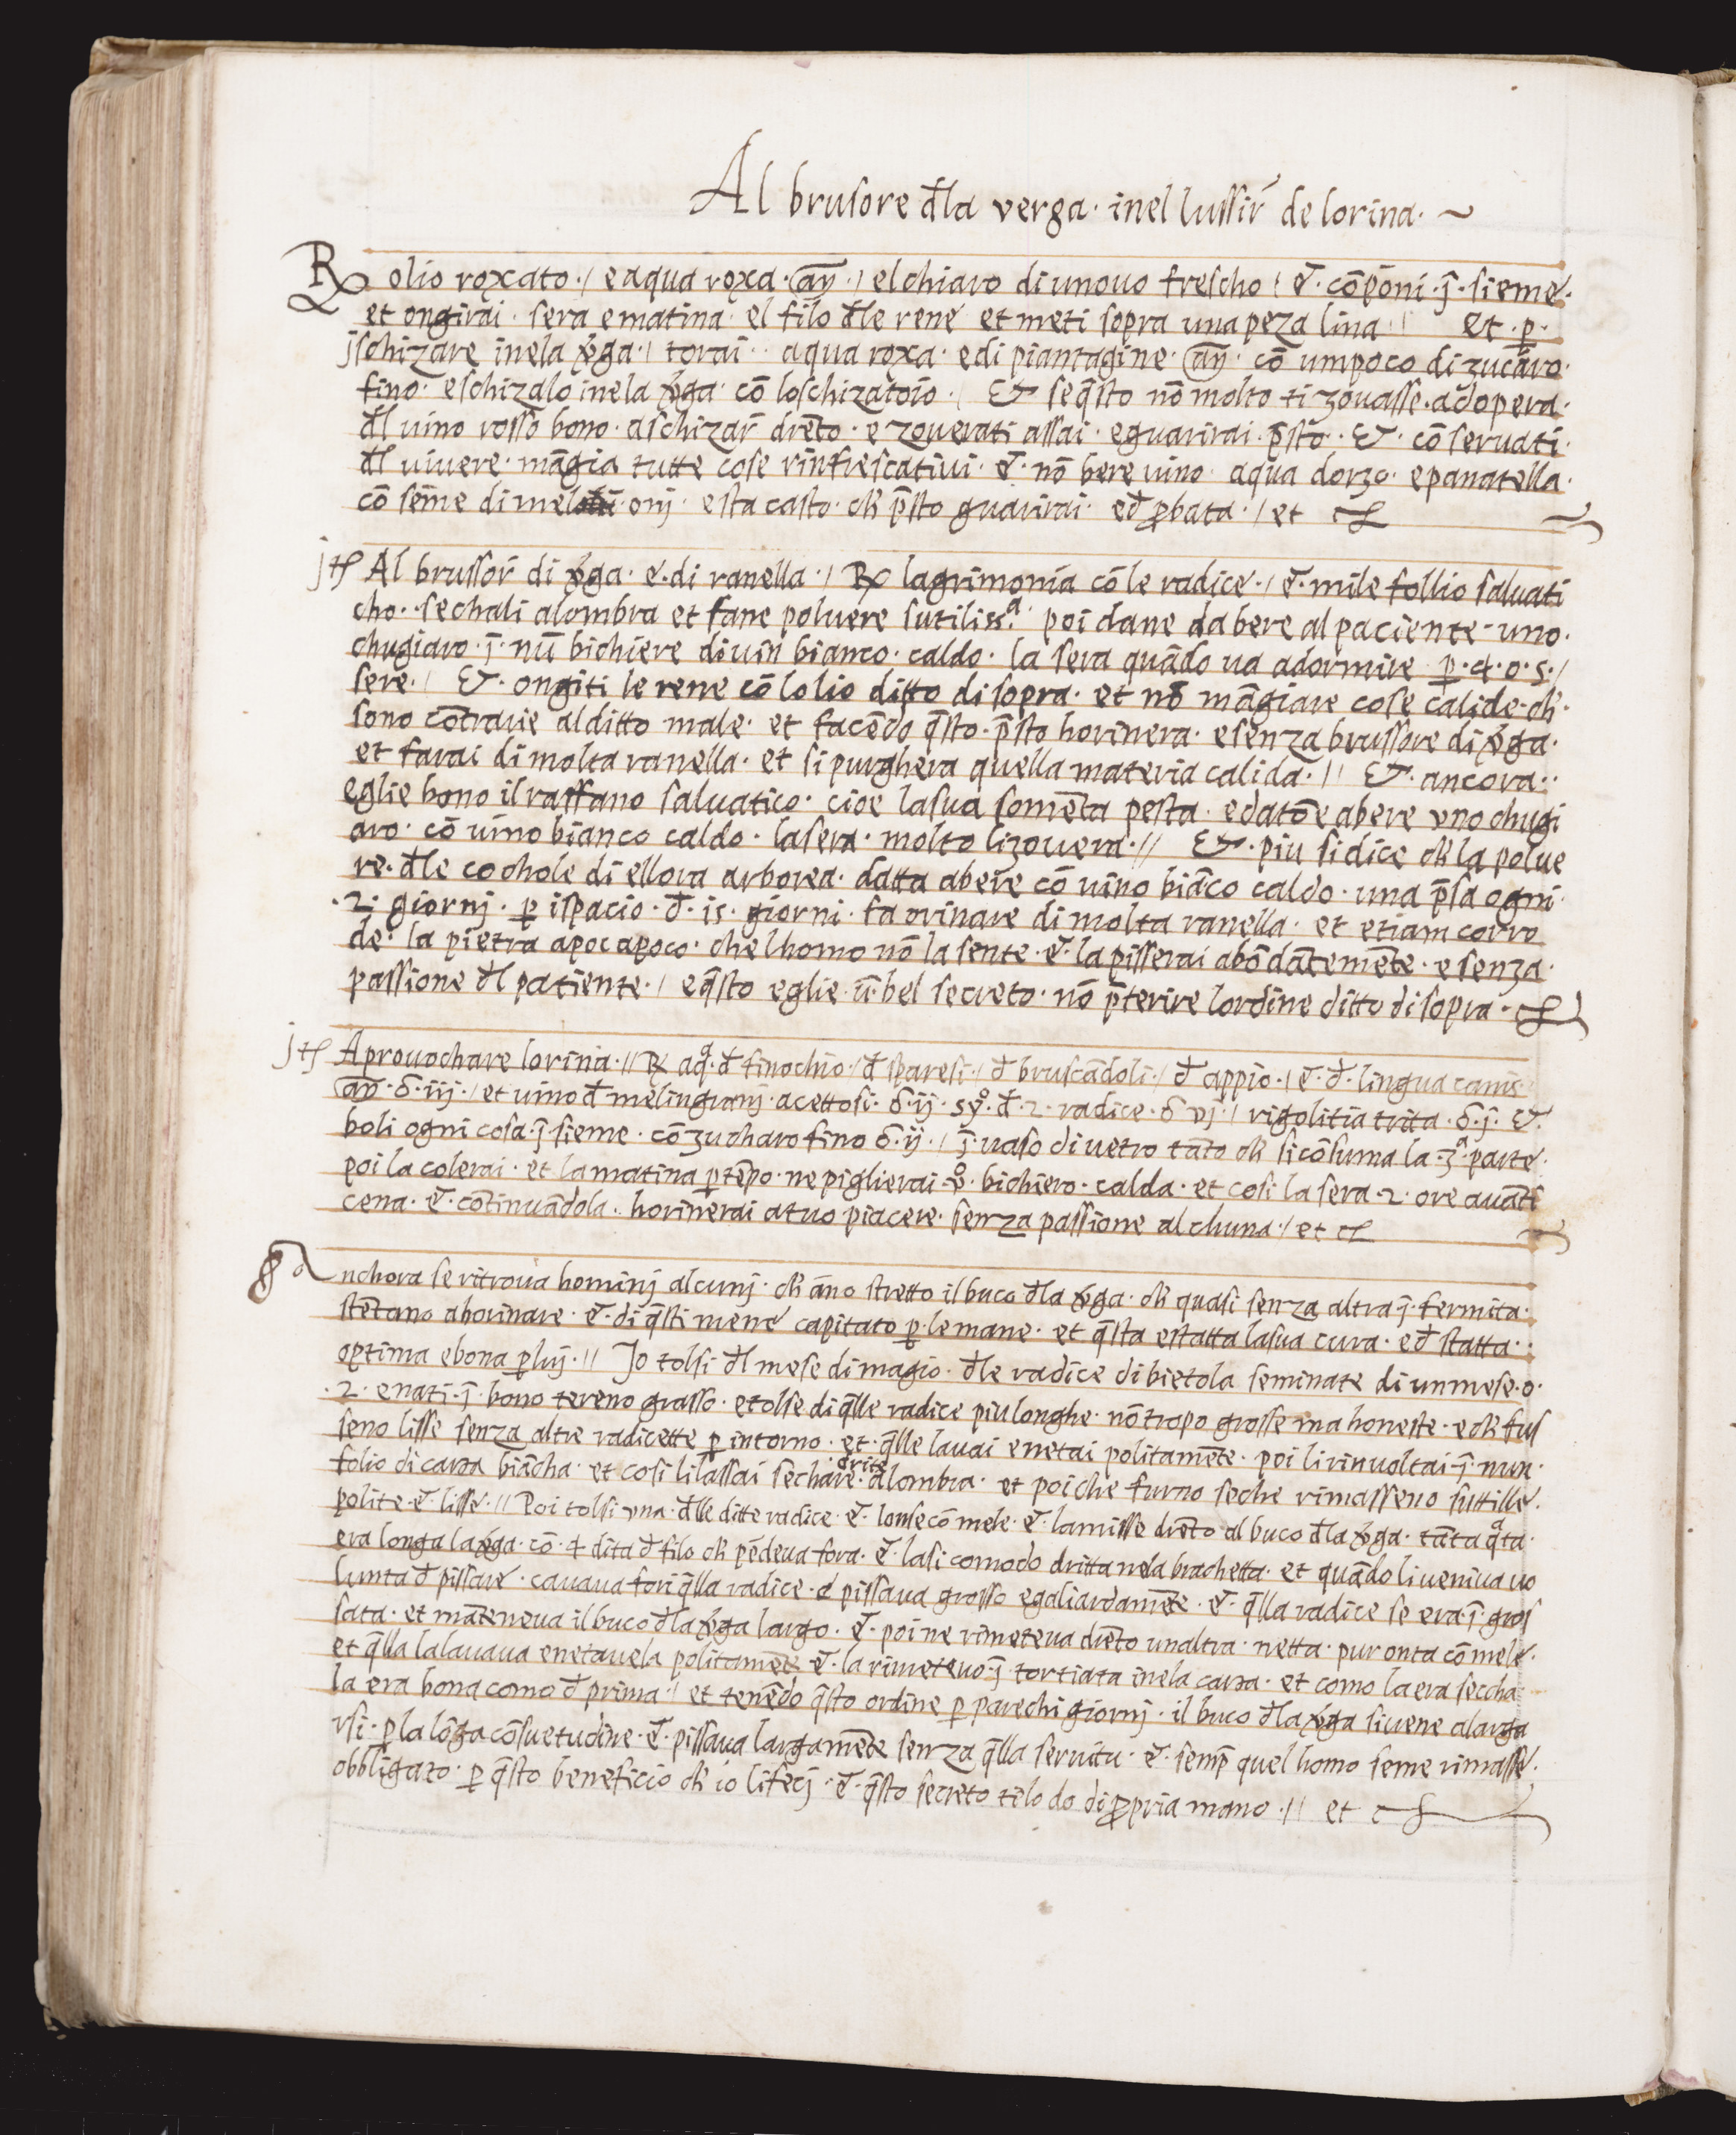 Al brusore đla verga · inel lussir̄ de lorina · ~
℞ olio roxato · / e aqua roxa · an̄ · / el chiaro di un ouo frescho / & · cōponi · j̄ · sieme ·
et ongirai · sera e matina · el filo đle rene et meti sopra una peza lina · / et · ꝑ ·
jschizare inela v̄ga · / torai · aqua roxa · e di piantagine · an̄ · cō um poco di zucaro ·
fino · e schizalo inela v̄ga · cō lo schizatoio · / & se q̄sto nō molto ti zouasse · adopera ·
đl uino rosso bono · a schizar̄ drēto · e zouerati assai · e guarirai · p̄sto · & · cō seruati ·
đl uiuere · māgia tutte cose rinfrescatiui · & · nō bere uino · aqua dorzo · e panatella ·
cō seme di mel onj · e sta casto · ch̄ p̄sto guarirai · eđ ꝓbata · / et
jtꝭ Al brussor̄ di v̄ga · & · di ranella · / ℞ lagrimonia cō le radice · / & · mile follio saluati
cho · sechali alombra et fane poluere sutiliss.ᵃ poi dane da bere al paciente · uno ·
chugiaro · j̄ · nū bichiere di uin bianco · caldo · la sera quādo ua a dormire ꝑ · 4 · o · 5 · /
sere · / & · ongiti le rene cō lolio ditto di sopra · et nō māgiare cose calide · ch̄ ·
sono cōtrarie al ditto male · et facēdo q̄sto · p̄sto horinera · e senza brussore di v̄ga ·
et farai di molta ranella · et si purghera quella materia calida · // & · ancora ·
eglie bono il raffano saluatico · cioe la sua somēta pesta · e datōe a bere uno chugi
aro · cō uino bianco caldo · la sera · molto li zouera · // & · piu si dice ch̄ la polue
re · đle cochole di ellora arborea · datta a bere cō uino biāco caldo · una p̄sa ogni ·
· 2 · giornj · ꝑ ispacio · đ · 15 · giorni · fa orinare di molta ranella · et etiam corro
de · la pietra a poc a poco · che lhomo nō la sente · & · la pisserai abōdātemēte · e senza ·
passione đl patiente · / e q̄sto eglie · ū · bel secreto · nō p̄terire lordine ditto di sopra ·
jtꝭ A prouochare lorina · // ℞ aq̊ · đ finochio / đ sparesi · / đ bruscādoli · / đ appio · / & · đ · lingua canis
an̄ · ō · iij · / et uino đ melingranj · acettosi · ō · ij · sẙ · đ · 2 · radice · ō vj · / rigolitia trita · ō · j · &
boli ogni cosa · j̄ · sieme · cō zucharo fino ō · ij · / j̄ · uaso di uetro tāto ch̄ si cōsuma la · 3ᵃ · parte ·
poi la colerai · et la matina ꝑ tēpo · ne piglierai · v̊ · bichiero · calda · et cosi la sera · 2 · ore auāte
cena · & · cōtinuādola · horinerai a tuo piacere · senza passione alchuna · / et
Anchora se ritroua hominj alcunj · ch̄ āno stretto il buco đla v̄ga · ch̄ quasi senza altra j̄ · fermita ·
stētano a horinare · & · di q̄sti mene capitato ꝑ · le mane · et q̄sta e statta la sua cura · eđ statta ·
optima e bona ꝑ luj · // Jo tolsi đl mese di magio · đle radice di bietola seminate di un mese · o ·
· 2 · e nati · j̄ · bono tereno grasso · e tolse di q̄lle radice piu longhe · nō tropo grosse ma honeste · e ch̄ fus
seno lisse senza altre radicette ꝑ intorno · et · q̄lle lauai e netai politamēte · poi li rinuoltai · j̄ · nun ·
folio di carta biācha · et cosi li lassai sechare · drite alombra · et poi che furno seche rimasseno suttille ·
polite · & · lisse · // Poi tolsi una · đlle ditte radice · & · lonse cō mele · & · la misse drēto al buco đla v̄ga · tāta q̄ᵃta ·
era longa la v̄ga · cō · 4 dita đ filo ch̄ pēdeua fora · & · lasi comodo dritta nela brachetta · et quādo li ueniua uo
lunta đ pissare · cauaua fori q̄lla radice · e pissaua grosso e galiardamēte · & · q̄lla radice se era · j̄ · gros
sata · et māteneua il buco đla v̄ga largo · & · poi ne rimeteua drēto unaltra · netta · pur onta cō mele ·
et q̄lla la lauaua e netauela politamēte & · la rimeteuo · j̄ · tortiata inela carta · et como la era seccha
la era bona como đ prima · / et tenēdo q̄sto ordine ꝑ parechi giornj · il buco đla v̄ga si uene alarga
rsi · ꝑ la lōga cōsuetudine · & · pissaua largamēte senza q̄lla seruitu · & · semp̄ quel homo seme rimasse ·
obbligato · ꝑ q̄sto beneficio ch̄ io li fecj · & · q̄sto secreto telo do di ꝓpria mano · // et